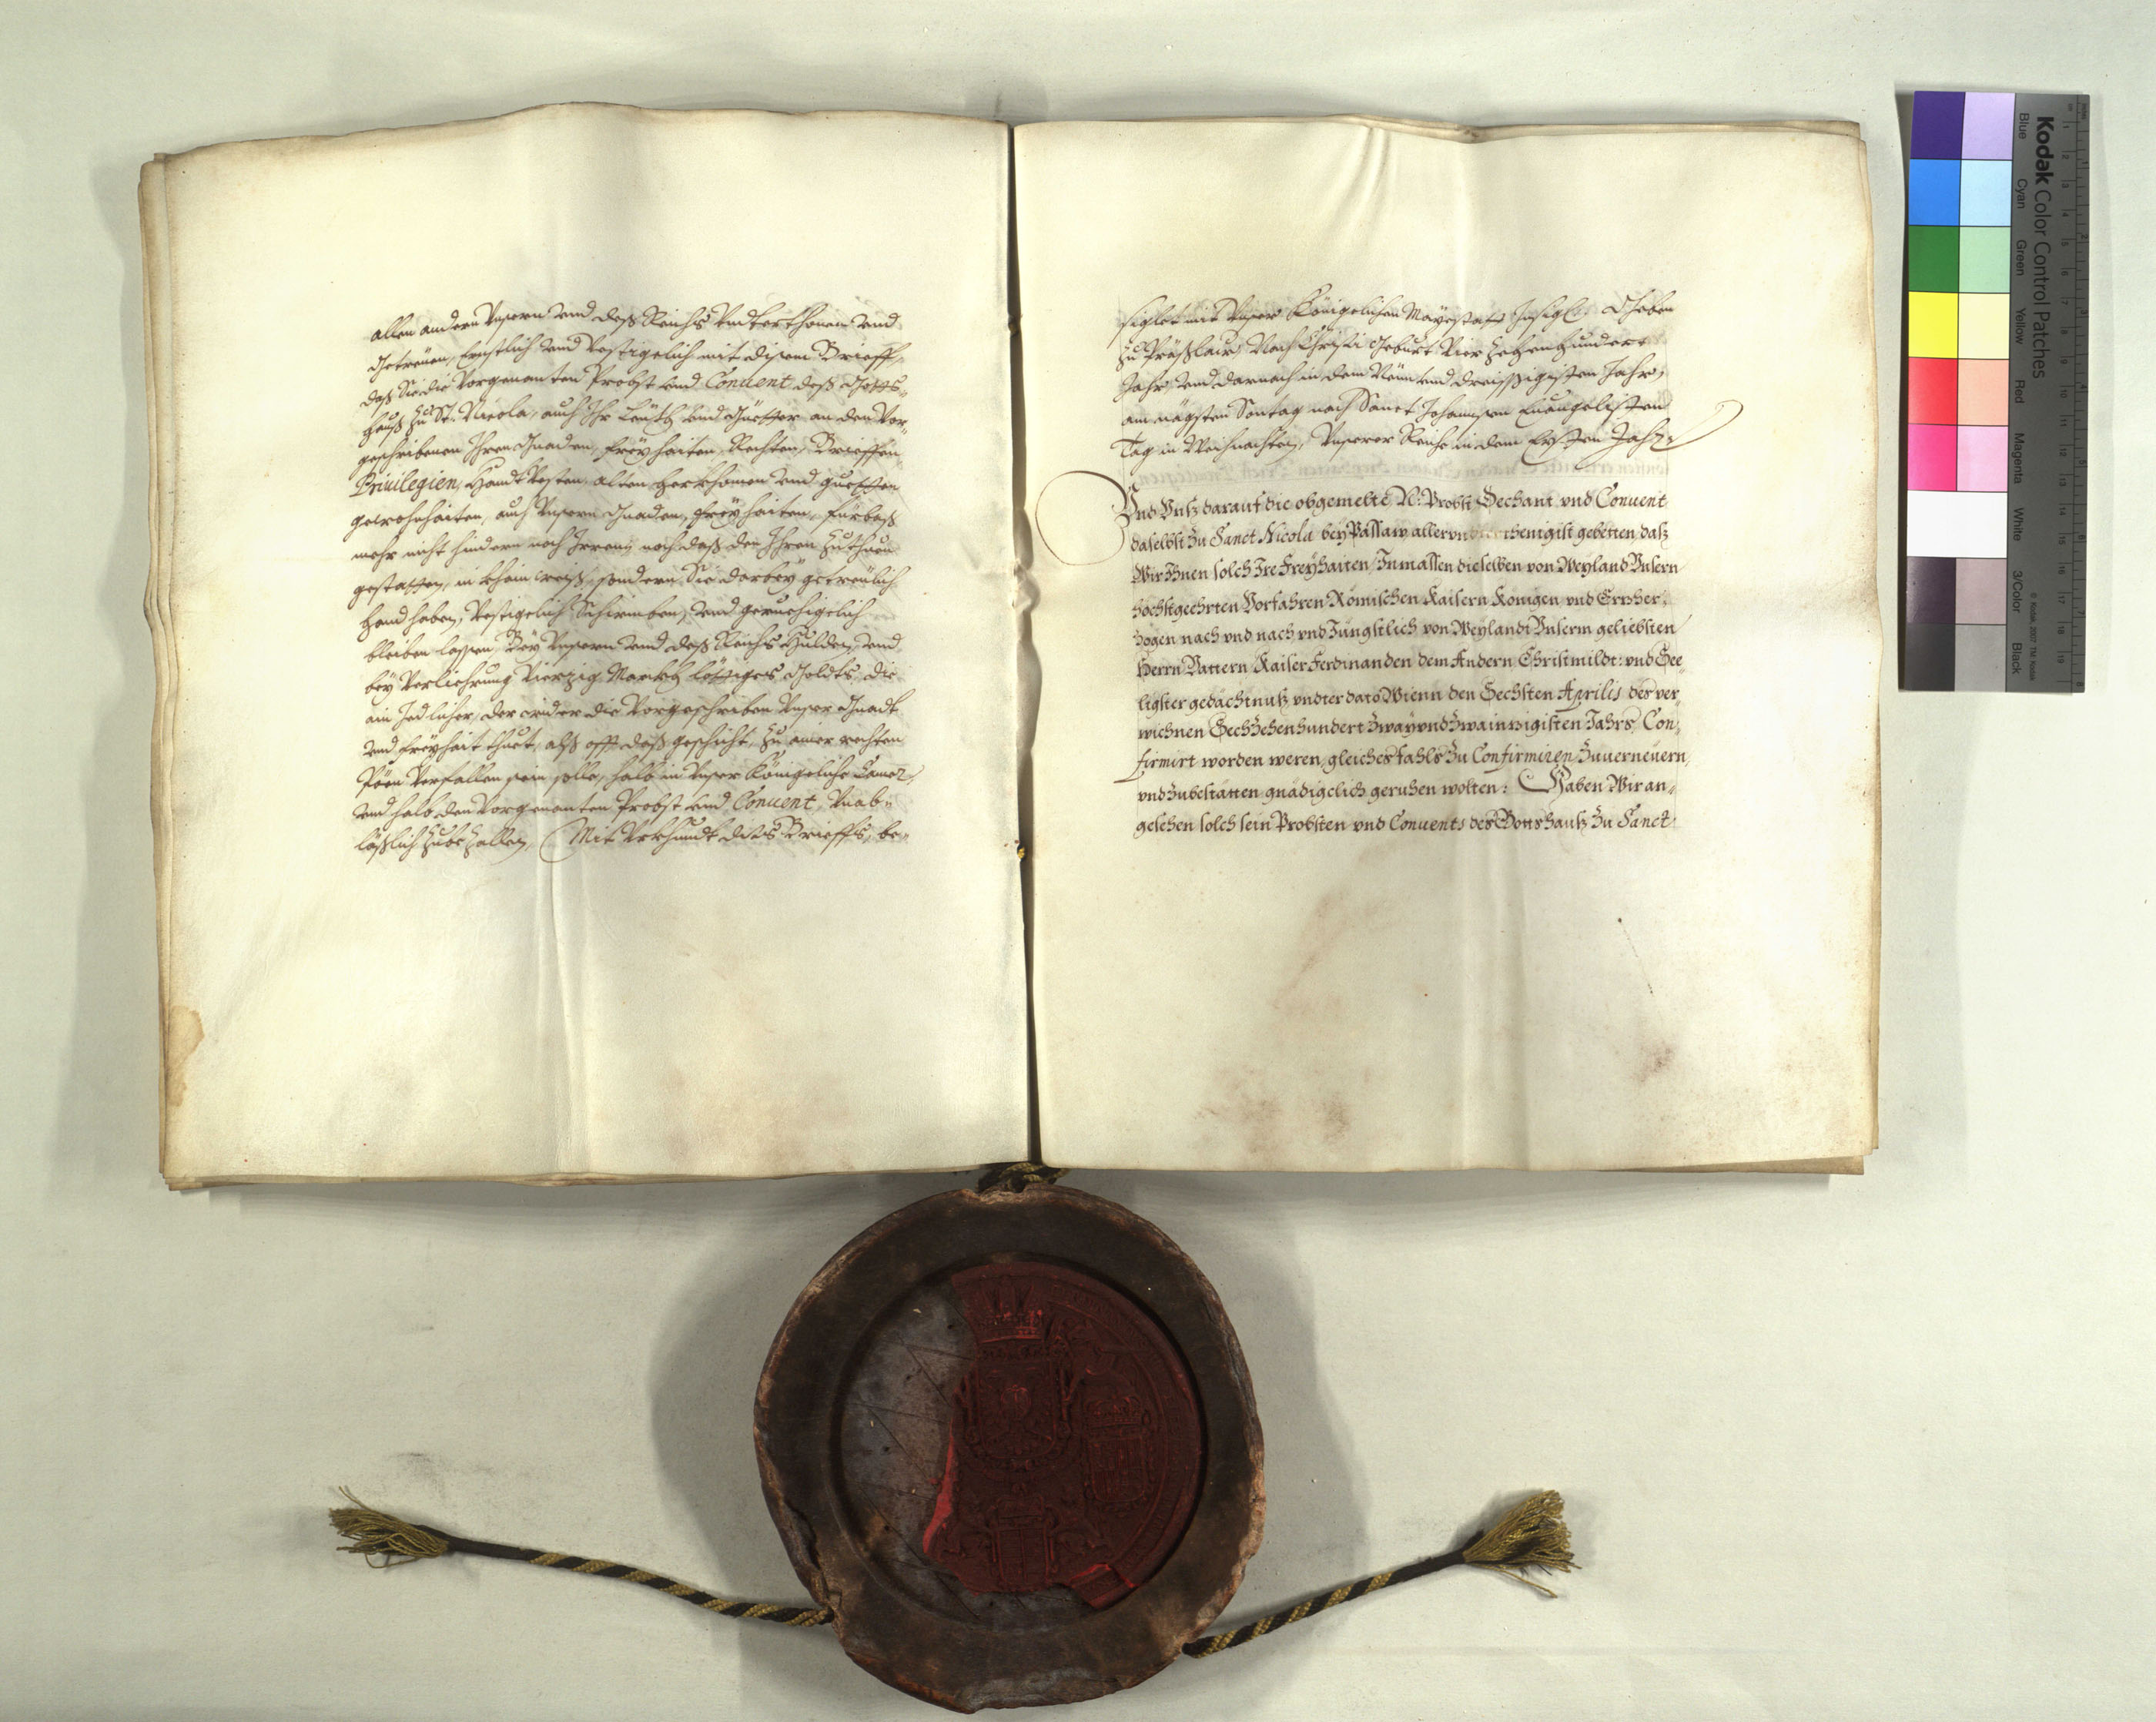 allen andern Unsern und deß Reichs Undterthonen und
Getreuen, Ernstlich und Vestigelich mit disem Brieff,
daß Sie die Vorgenanten Probst und Conuent deß Gotts-
hauß zu St. Nicola, auch Ihr Leuth und Güetter an den Vor-
geschribenen Ihren Gnaden, Freyhaiten, Rechten, Brieffen,
Priuilegien, Handtvesten, alten Herkhomen und guetten
gewohnhaiten, auch Unsern Gnaden, Freyhaiten, fürbaß
mehr nicht hindern noch Irren, noch daß den Ihren zuthuen
gestatten, in khain weiß, sondern Sie darbey getreulich
handhaben, Vestigelich Schirmben, und geruehigelich
bleiben lassen, Bey Unsern und deß Reichs Hulden, und
bey Verliehrung Vierzig Markh löttiges Goldts, die
ain Jedlicher, der wider die Vorgeschriben Unser Gnadt
und Freyhait thuet, alß offt daß geschicht, zu einer rechten
Pöen Verfallen sein solle, halb in Unser Königeliche Camer,
und halb den Vorgenanten Probst und Conuent, Unab-
läßlich zubezallen, Mit Urkhundt dits Brieffs, be-
siglet mit Unser Königelichen Mayestatt Insigl. Geben
zu Präßlaw, Nach Christi Geburt Vierzehenhundert
Jahr, und darnach in dem Neun und dreissigisten Jahr,
am nägsten Sontag nach Sanct Johannsen Euangelisten
Tag in Weihnachten, Unserer Reiche in dem Ersten Jahr.
Und Unß darauf die obgemelte N: Probst Dechant und Conuent
daselbst zu Sanct Nicola bey Passaw allerunderthenigist gebetten, daß
Wir Ihnen solch Ire Freyhaiten, Inmassen dieselben von Weyland Unsern
Höchstgeehrten Vorfahren Römischen Kaisern Königen und Erzher-
zogen nach und nach und Jungstlich von Weylandt Unserm geliebsten
Herrn Vattern Kaiser Ferdinanden dem Andern Christmildt: und See-
ligster gedächtnuß undter dato Wienn den Sechsten Aprilis des ver-
wichnen Sechzehenhundert zway und zwainzigisten Jahrs, Con-
firmirt worden weren, gleichesfahls zu Confirmiren, zuuerneuern,
und zubestätten gnädigelich geruhen wolten: Haben Wir an-
gesehen solch sein Probsten und Conuents des Gottshauß zu Sanct
Kodak Color Control Patches
Blue Cyan Green Yellow Red Magenta White 3/Color Black